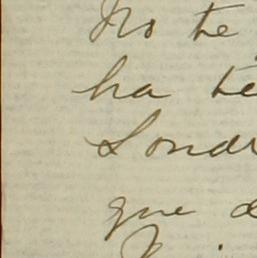 No te
ha te
Londr
que d